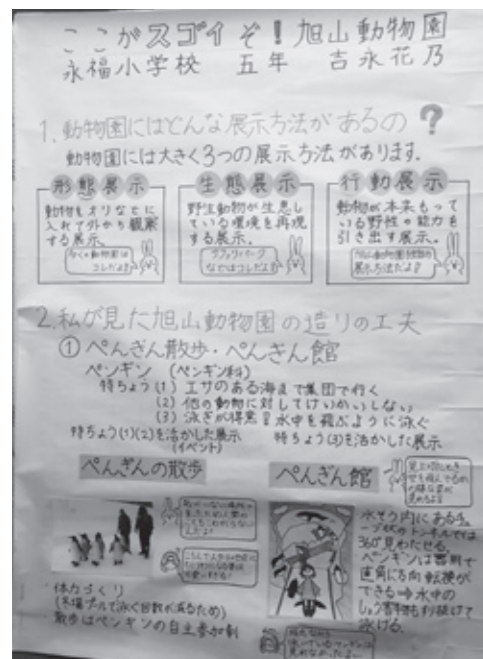 ここがスゴイぞ!旭山動物園
永福小学校 五年 吉永花乃
1.動物園にはどんな展示方法があるの?
動物園には大きく3つの展示方法があります。
形態展示
動物をオリなどに
入れて外から観察
する展示。
多くの動物園は
コレだよ!
生態展示
野生動物が生息し
ている環境を再現
する展示。
サファリパーク
などはコレだよ!
行動展示
動物が本来もって
いる野性の能力を
引き出す展示。
展示方法だよ!
2.私が見た旭山動物園の造りの工夫
①ぺんぎん散歩・ぺんぎん館
ペンギン (ペンギン科)
特ちょう(1) エサのある海まで集団で行く
(2) 他の動物に対してけいかいしない
(3) 泳ぎが得意!水中を飛ぶように泳ぐ
特ちょう(1)(2)を活かした展示
(イベント)
ぺんぎんの散歩
体力づくり
(冬場プールで泳ぐ回数が減るため)
散歩はペンギンの自主参加制
特ちょう(3)を活かした展示
ぺんぎん館
水そう内にあるチュ
ーブ状のトンネルでは
360°見わたせる。
ペンギンは
直角にも方向転換が
できる⇒水中の
しょう害物もすり抜けて
泳げる。